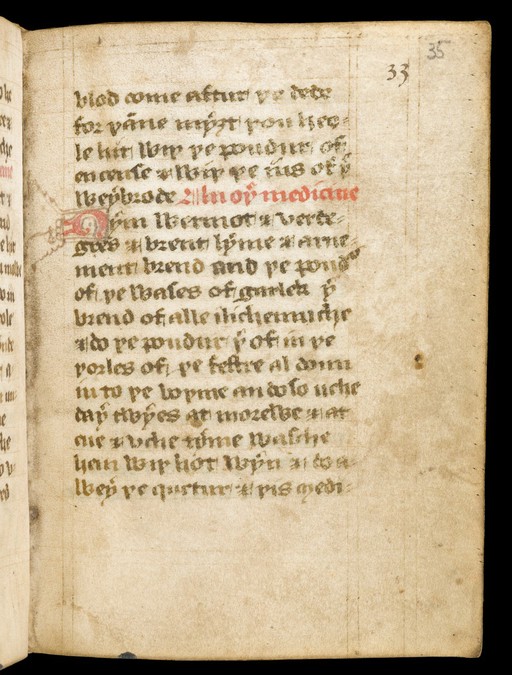 33
35
blod come aftur þe dede
for þāne myȝt þou hee-
le hit wiþ þe poudur of
encense & wiþ þe ius of þe
weybrode An oþ medicine
Nym wermot & verte-
gres & brent lyme & arne-
ment brend and þe poud
of þe wases of garlek þ
brend of alle iliche muche
& do þe poudur þ of in þe
þorles of þe festre al doun
in to þe boþme an do so uche
day twyes at morewe & at
eue & uche tyme wasche
hem wiþ hot wyn &
wey þe quetur & þis medi-